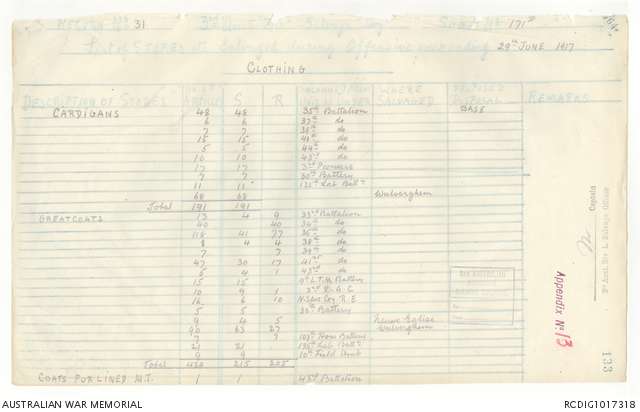 31
171ᴰ
Stores Salvaged during Offensive 29th JUNE 1917
CLOTHING
DESCRIPTION OF STORES S R WHERE SALVAGED DISPOSAL REMARKS
CARDIGANS 48 48 35th Battalion BASE
6 6 37th do
7 7 38th do
15 15 41st do
5 5 44th do
10 10 43rd do
17 17 3rd Pioneers
7 7 30th Battery
11 11 135th Lab Battn
68 68 Wulverghem
Total 191 191
GREATCOATS 13 4 9 33rd Battalion
40 40 34th do
118 41 77 36th do
8 4 4 38th do
7 7 39th do
47 30 17 41st do
5 4 1 43rd do
15 15 9th L.T.M. Battery
10 9 1 3rd D.A.C.
16 6 10 Coy R.E
5 5 30th Battery
9 4 5 Neuve Eglise
90 63 27 Wulverghem
7 7 Battery
21 21 135th Lab Battn
9 9 10th Field Amb
Total 215 205
COATS FUR LINED M.T. 1 1 43rd Battalion
Captain
3rd Aust. Div. L. Salvage Officer
Appendix No 13
133
AUSTRALIAN WAR MEMORIAL
RCDIG1017318